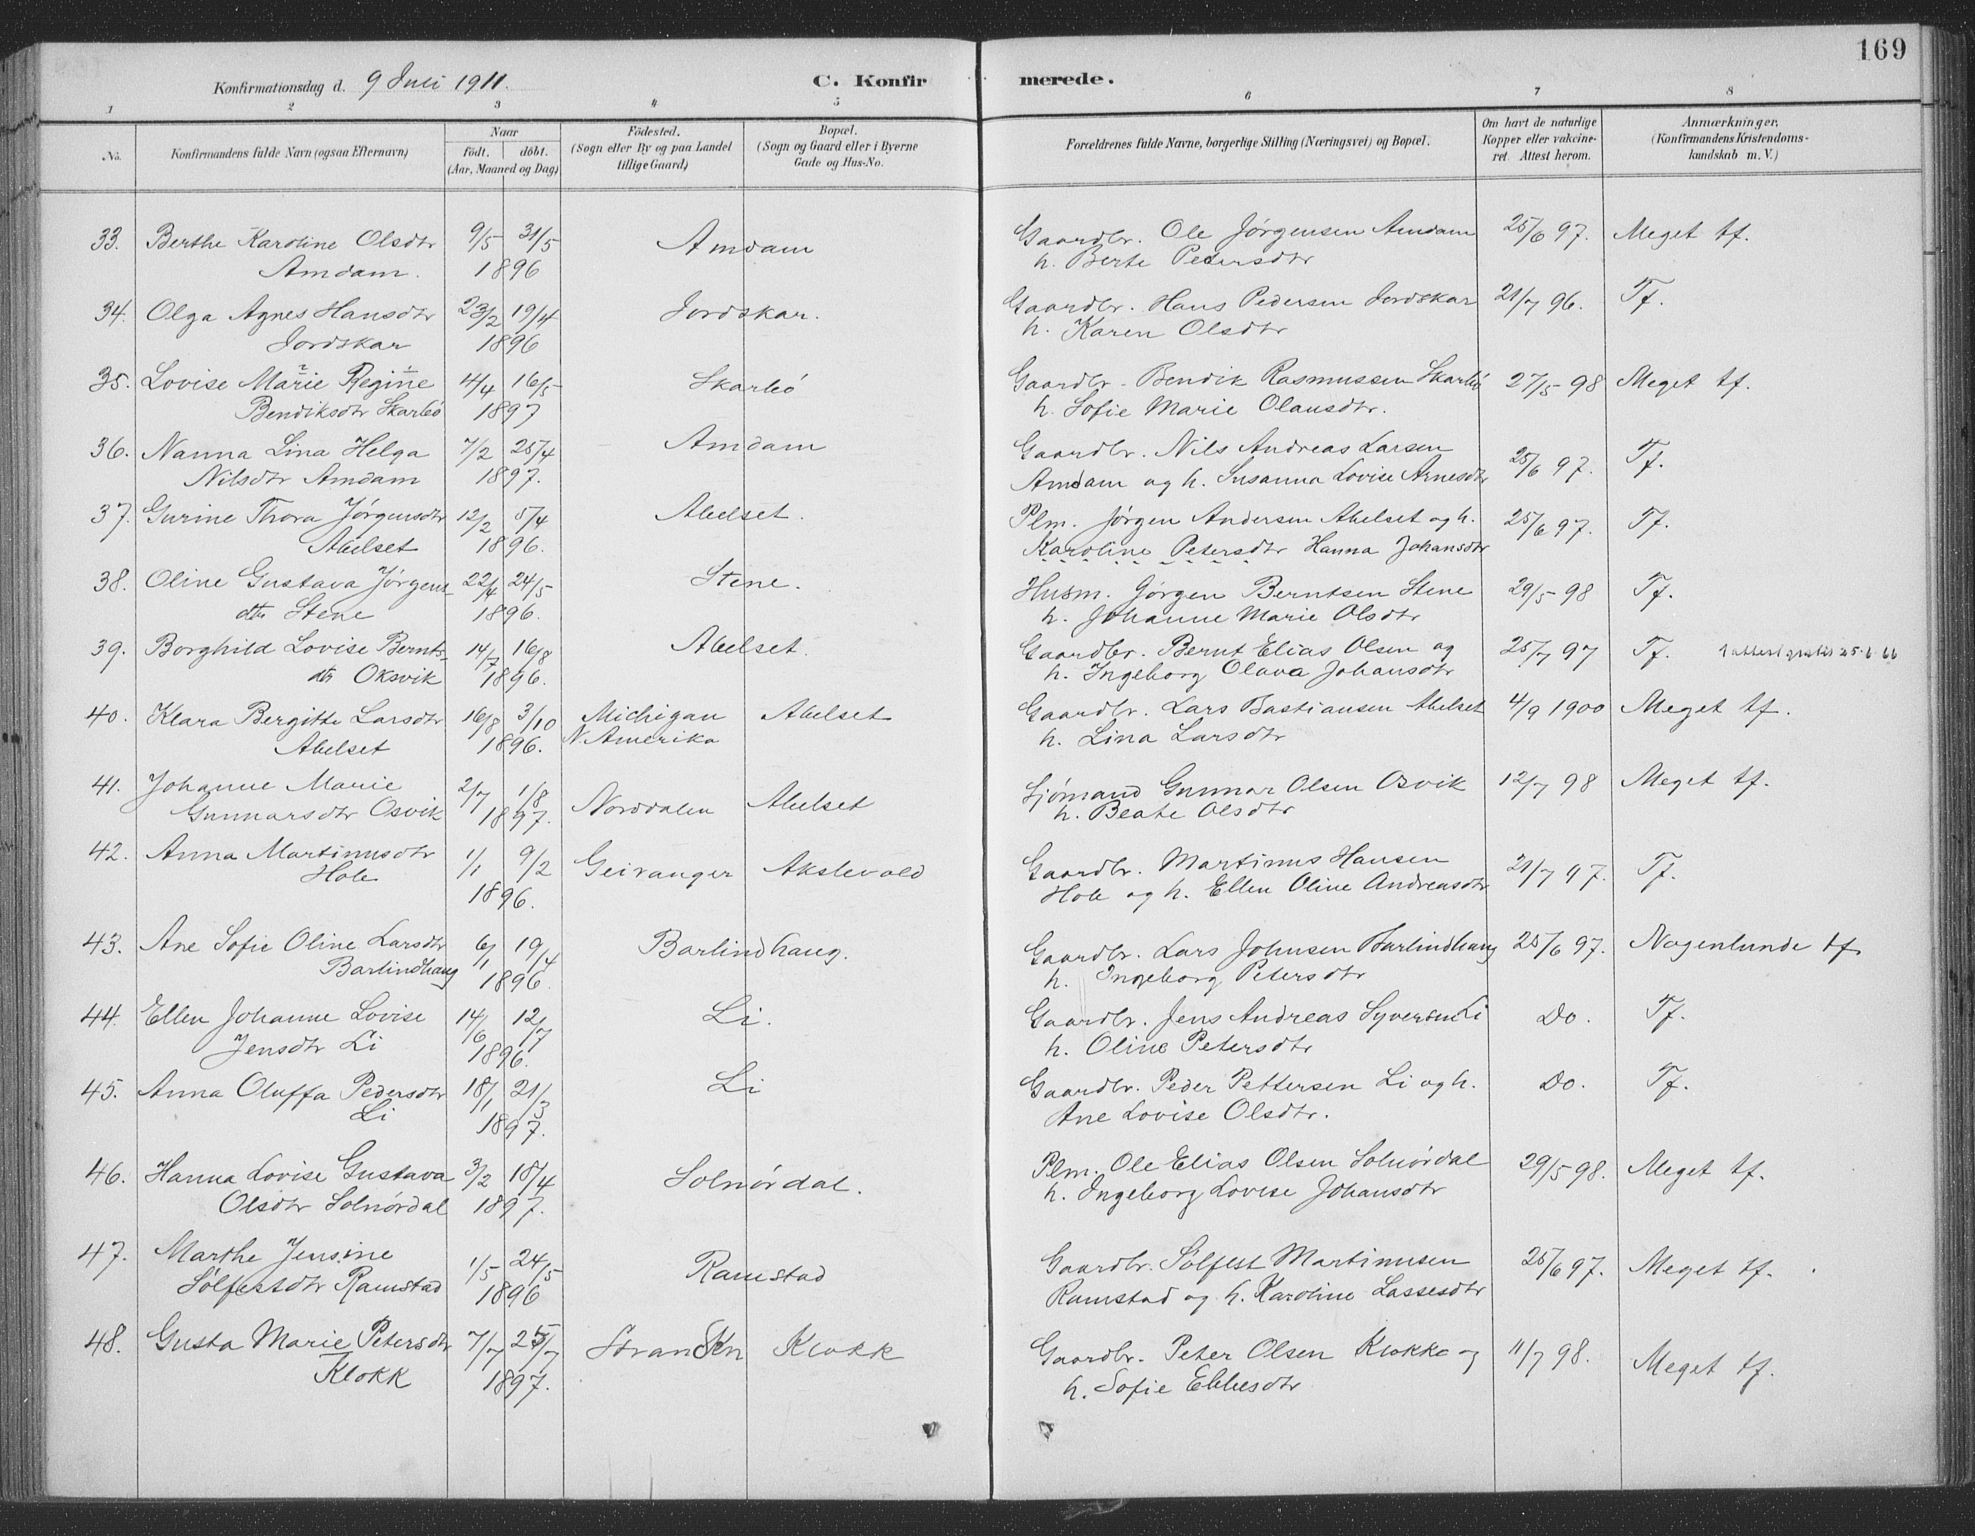 169
Konfirmationsdag d. 9 Juli 1911.
C. Konfirmerede.
1 2 3 4 5 6 7 8
No. Konfirmandens fulde Navn (ogsaa Efternavn)
Naar
födt. döbt.
(Aar, Maaned og Dag)
Födested.
(Sogn eller By og paa Landet
tillige Gaard)
Bopæl.
(Sogn og Gaard eller i Byerne
Gade og Hus-No.
Forældrenes fulde Navne, borgerlige Stilling (Næringsvei) og Bopæl.
Om havt de naturlige
Kopper eller vakcine-
ret. Attest herom.
Anmærkninger.
(Konfirmandens Kristendoms-
kundskab m. V.)
33. Berthe Karoline Olsdtr 9/5 31/5 Amdam Gaardbr. Ole Jørgensen Amdam 25/6 97. Meget tf.
Amdam. 1896 h. Berte Petersdtr
34. Olga Agnes Hansdtr 23/2 19/4 Jordskar. Gaardbr. Hans Pedersen Jordskar 21/7 96. Tf.
Jordskar 1896 h. Karen Olsdtr
35. Lovise Marie Regine 4/4 16/5 Skarbö Gaardbr. Bendik Rasmussen Skarbö 27/5 98 Meget tf.
Bendiksdtr Skarbö 1897 h. Sofie Marie Olausdtr.
36. Nanna Lina Helga 7/2 25/4 Amdam Gaardbr. Nils Andreas Larsen 25/6 97. Tf.
Nilsdtr Amdam 1897. Amdam og h. Susanna Lovise Arnesdtr
37. Gurine Thora Jörgensdtr 12/2 5/4 Abelset. Plm. Jörgen Andersen Abelset og h. 25/6 97. Tf.
Abelset 1896. Karoline Petersdtr Hanna Johansdtr
38. Oline Gustava Jörgens- 22/4 24/5 Stene. Husm. Jörgen Berntsen Stene 29/5 98 Tf.
dtr Stene 1896. h. Johanne Marie Olsdtr
39. Borghild Lovise Bernts- 14/7 16/8 Abelset. Gaardbr. Bernt Elias Olsen og 25/7 97 Tf.
dtr Oksvik 1896. h. Ingeborg Olava Johansdtr
40. Klara Bergitte Larsdtr 16/8 3/10 Michigan Abelset Gaardbr. Lars Bastiansen Abelset 4/9 1900 Meget tf.
Abelset 1896. N. Amerika h. Lina Larsdtr
41. Johanne Marie 2/7 1/8 Norddalen Abelset Sjömand Gunnar Olsen Osvik 12/7 98 Meget tf.
Gunnarsdtr Osvik 1897. h. Beate Olsdtr
42. Anna Martinusdtr 1/1 9/2 Geiranger Akslevold Gaardbr. Martinus Hansen 21/7 97. Tf.
Hole 1896. Hole og h. Ellen Oline Andreasdtr
43. Ane Sofie Oline Larsdtr 6/1 19/4 Barlindhaug. Gaardbr. Lars Johnsen Barlindhaug 25/6 97. Nogenlunde tf
Barlindhaug 1896. h. Ingeborg Petersdtr
44. Ellen Johanne Lovise 14/6 12/7 Li. Gaardbr. Jens Andreas Syversen Li Do. Tf.
Jensdtr Li 1896. h. Oline Petersdtr
45. Anna Oluffa Pedersdtr 18/1 21/3 Li Gaardbr. Peder Pettersen Li og h. Do. Tf.
Li 1897. Ane Lovise Olsdtr.
46. Hanna Lovise Gustava 3/2 18/4 Solnördal. Plm. Ole Elias Olsen Solnördal 29/5 98. Meget tf.
Olsdtr Solnördal 1897. h. Ingeborg Lovise Johansdtr
47. Marthe Jensine 1/5 24/5 Ramstad Gaardbr. Sölfest Martinusen 25/6 97. Meget tf.
Sölfestsdtr Ramstad 1896 Ramstad og h. Karoline Lassesdtr
48. Gusta Marie Petersdtr 7/7 25/7 Klokk Gaardbr. Peter Olsen Klokk og 11/7 98. Meget tf.
Klokk 1897. h. Sofie Ebbesdtr